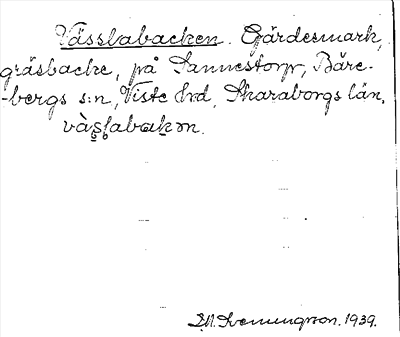 Vässlabacken. Gärdesmark,
gräsbacke, på Sannestorp, Båre-
-bergs s:n, Viste hd, Skaraborgs län.
vàs̥labakən.
1939.